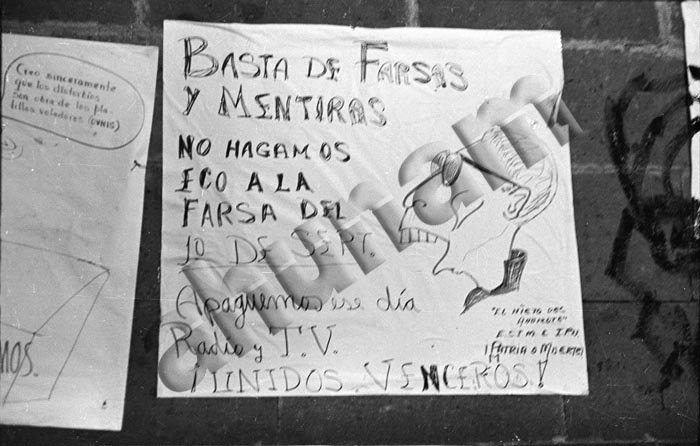 Creo sinceramente
que los disturbios
son obra de los pla
tillos voladores (OVNIS)
MOS.
BASTA DE FARSAS
Y MENTIRAS
NO HAGAMOS
ECO A LA
FARSA DEL
10 DE SEPT.
Apaguemos ese día
Radio y T.V.
¡UNIDOS VENCEROS!
"EL NIETO DEL
AHUIZOTE"
E S I M E I P N
¡PATRIA O MUERTE!
ahunam